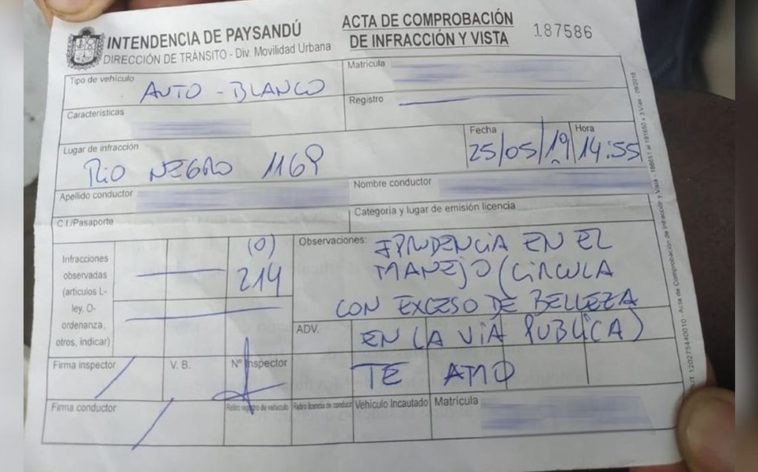 INTENDENCIA DE PAYSANDÚ
DIRECCIÓN DE TRÁNSITO - Div. Movilidad Urbana
ACTA DE COMPROBACIÓN
DE INFRACCIÓN Y VISTA
187586
Tipo de vehículo
AUTO - BLANCO
Matrícula
Características
Registro
Lugar de infracción
RIO NEGRO 1169
Fecha
25/05/19
Hora
14:55
Apellido conductor
Nombre conductor
C.I/Pasaporte
Categoria y lugar de emisión licencia
Infracciones
observadas
(artículos L-
ley, O-
ordenanza,
otros, indicar)
(O)
214
Observaciones:
IPRUDENCIA EN EL
MANEJO (CIRCULA
CON EXCESO DE BELLEZA
EN LA VIA PUBLICA)
ADV.
TE AMO
Firma inspector
V. B.
Nº Inspector
Firma conductor
Retiro registro de vehículo
Retiro licencia de conducir
Vehículo Incautado
Matrícula